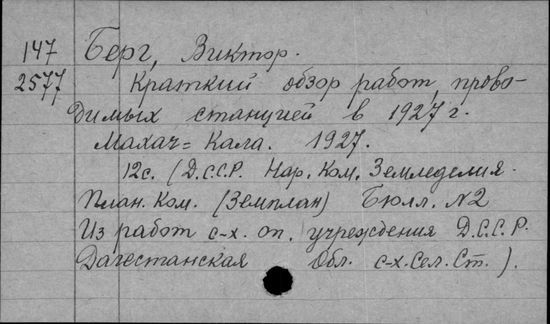 147 Берг, Виктор.
2577 Краткий обзор работ, прово-
димых станцией в 1927 г.
Махач=Кала. 1927.
12с. (Д.С.С.Р. Нар. Ком. Земледелия.
План. Ком. (Земплан) Бюлл. №2
Из работ с-х. оп. учреждения Д.С.С.Р.
Дагестанская Обл. с-х. Сел. Ст.).